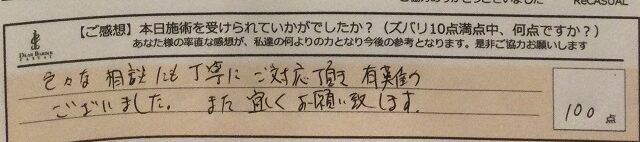 ReCASUAL
【ご感想】本日施術を受けられていかがでしたか？（ズバリ10点満点中、何点ですか？）
あなた様の率直な感想が、私達の何よりの力となり今後の参考となります。是非ご協力お願いします
色々な相談にも丁寧にご対応頂き有難う
ございました。また宜しくお願い致します。
100点